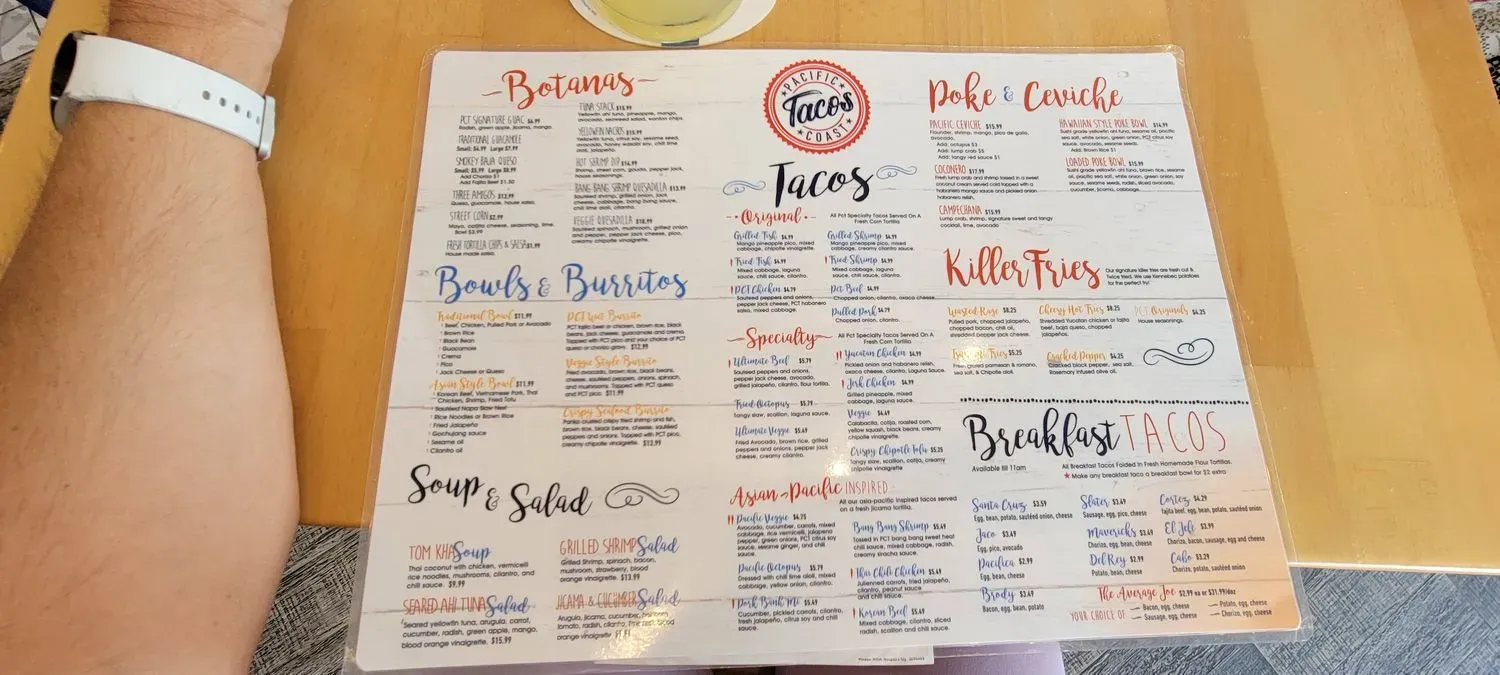 Botanas
PCT SIGNATURE GUAC $6.99
Radish, green apple, jicama, mango.
TRADITIONAL GUACAMOLE
Small: $4.99 Large $7.99
SMOKEY BAJA QUESO
Small: $5.99 Large $8.99
Add Chorizo $1
Add Fajita Beef $1.50
THREE AMIGOS $12.99
Queso, guacamole, house salsa.
STREET CORN $2.99
Mayo, cojita cheese, seasoning, lime.
Bowl $3.99
FRESH TORTILLA CHIPS & SALSA $1.99
House made salsa.
TUNA STACK $15.99
Yellowfin ahi tuna, pineapple, mango,
avocado, seaweed salad, wonton chips
YELLOWFIN NACHOS $15.99
Yellowfin tuna, citrus soy, sesame seed,
avocado, honey wasabi soy, chili lime
aioli, jalapeño.
HOT SHRIMP DIP $14.99
Shrimp, street corn, gouda, pepper jack,
house seasonings.
BANG BANG SHRIMP QUESADILLA $13.99
Sauteed shrimp, grilled onion, jack
cheese, cabbage, bang bang sauce,
chili lime aioli, cilantro.
VEGGIE QUESADILLA $10.99
Sauteed spinach, mushroom, grilled onion
and pepper, pepper jack cheese, pico,
creamy chipotle vinaigrette.
Bowls & Burritos
Traditional Bowl $11.99
Beef, Chicken, Pulled Pork or Avocado
Brown Rice
Black Bean
Guacamole
Crema
Pico
Jack Cheese or Queso
Asian Style Bowl $11.99
Korean Beef, Vietnamese Pork, Thai
Chicken, Shrimp, Fried Tofu
Sautéed Napa Slaw Nest
Rice Noodles or Brown Rice
Fried Jalapeño
Gochujang sauce
Sesame oil
Cilantro oil
PCT Wet Burrito
PCT fajita beef or chicken, brown rice, black
beans, jack cheese, guacamole and crema.
Topped with PCT pico and your choice of PCT
queso or cholizo gravy. $12.99
Veggie Style Burrito
Fried avocado, brown rice, black beans,
cheese, sautéed peppers, onions, spinach,
and mushrooms. Topped with PCT queso
and PCT pico. $11.99
Crispy Seafood Burrito
Panko crusted crispy fried shrimp and fish,
brown rice, black beans, cheese, sautéed
peppers and onions. Topped with PCT pico,
creamy chipotle vinaigrette. $13.99
Soup & Salad
TOM KHA Soup
Thai coconut with chicken, vermicelli
rice noodles, mushrooms, cilantro, and
chili sauce. $9.99
SEARED AHI TUNA Salad
Seared yellowfin tuna, arugula, carrot,
cucumber, radish, green apple, mango,
blood orange vinaigrette. $15.99
GRILLED SHRIMP Salad
Grilled Shrimp, spinach, bacon,
mushroom, strawberry, blood
orange vinaigrette. $13.99
JICAMA & CUCUMBER Salad
Arugula, jicama, cucumber,
tomato, radish, cilantro, blood
orange vinaigrette
PACIFIC
Tacos
COAST
Tacos
Original
All Pct Specialty Tacos Served On A
Fresh Corn Tortilla
Grilled Fish $4.99
Mango pineapple pico, mixed
cabbage, chipotle vinaigrette.
Fried Fish $4.99
Mixed cabbage, laguna
sauce, chili sauce, cilantro.
PCT Chicken $4.79
Sauteed peppers and onions,
pepper jack cheese, PCT habanero
salsa, mixed cabbage.
Grilled Shrimp $4.99
Mango pineapple pico, mixed
cabbage, creamy cilantro sauce.
Fried Shrimp $4.99
Mixed cabbage, laguna
sauce, chili sauce, cilantro.
Pct Beef $4.99
Chopped onion, cilantro, oaxaca cheese.
Pulled Pork $4.79
Chopped onion, cilantro.
Specialty
All Pct Specialty Tacos Served On A
Fresh Corn Tortilla
Ultimate Beef $5.79
Sauteed peppers and onions,
pepper jack cheese, avocado,
grilled jalapeño, cilantro, flour tortilla.
Fried Octopus $5.79
Tangy slaw, scallion, laguna sauce.
Ultimate Veggie $5.49
Fried Avocado, brown rice, grilled
peppers and onions, pepper jack
cheese, creamy cilantro.
Yucatan Chicken $4.99
Pickled onion and habanero relish,
oaxaca cheese, cilantro, Laguna Sauce.
Jerk Chicken $4.99
Grilled pineapple, mixed
cabbage, laguna sauce.
Veggie $4.49
Calabacita, cotija, roasted corn,
yellow squash, black beans, creamy
chipotle vinaigrette.
Crispy Chipotle Tofu $5.25
Tangy slaw, scallion, cotija, creamy
chipotle vinaigrette
Asian-Pacific INSPIRED
All our asia-pacific inspired tacos served
on a fresh jicama tortilla.
Pacific Veggie $4.75
Avocado, cucumber, carrots, mixed
cabbage, rice vermicelli, jalapeno
pepper, green onions, PCT citrus soy
sauce, sesame ginger, and chili
sauce.
Pacific Octopus $5.79
Dressed with chili lime aioli, mixed
cabbage, yellow onion, cilantro.
Pork Bahn Mi $5.49
Cucumber, pickled carrots, cilantro,
fresh jalapeño, citrus soy and chili
sauce.
Bang Bang Shrimp $5.49
Tossed in PCT bang bang sweet heat
chili sauce, mixed cabbage, radish,
creamy sracha sauce.
Thai Chili Chicken $5.49
Julienned carrots, fried jalapeño,
cilantro, peanut sauce
and chili sauce.
Korean Beef $5.49
Mixed cabbage, cilantro, sliced
radish, scallion and chili sauce.
Poke & Ceviche
PACIFIC CEVICHE $15.99
Flounder, shrimp, mango, pico de gallo,
avocado.
Add: octopus $3
Add: lump crab $5
Add: tangy red sauce $1
COCONERO $17.99
Fresh lump crab and shrimp tossed in a sweet
coconut cream served cold topped with a
habanero mango sauce and pickled onion
habanero relish.
CAMPECHANA $15.99
Lump crab, shrimp, signature sweet and tangy
cocktail, lime, avocado
HAWAIIAN STYLE POKE BOWL $14.99
Sushi grade yellowfin ahi tuna, sesame oil, pacific
sea salt, white onion, green onion, PCT citrus soy
sauce, avocado, sesame seeds.
Add: Brown Rice $1
LOADED POKE BOWL $15.99
Sushi grade yellowfin ahi tuna, brown rice, sesame
oil, pacific sea salt, white onion, green onion, soy
sauce, sesame seeds, radish, sliced avocado,
cucumber, jicama, cabbage.
Killer Fries
Our signature killer fries are fresh cut &
Twice fried. We use Kennebec potatoes
for the perfect fry!
Wasted Rose $8.25
Pulled pork, chopped jalapeño,
chopped bacon, chili oil,
shredded pepper jack cheese.
Cheesy Hot Fries $8.25
Shredded Yucatan chicken or fajita
beef, baja queso, chopped
jalapeños.
PCT Originals $4.25
House seasonings.
Fries $5.25
Fresh grated parmesan & romano,
sea salt, & Chipotle aioli.
Cracked Pepper $4.25
Cracked black pepper, sea salt,
Rosemary infused olive oil.
Breakfast TACOS
Available till 11am
All Breakfast Tacos Folded In Fresh Homemade Flour Tortillas.
★ Make any breakfast taco a breakfast bowl for $2 extra
Santa Cruz $3.59
Egg, bean, potato, sautéed onion, cheese
Jaco $3.49
Egg, pico, avocado
Pacifica $2.99
Egg, bean, cheese
Brody $3.49
Bacon, egg, bean, potato
Slater $3.49
Sausage, egg, pico, cheese
Mavericks $3.49
Chorizo, egg, bean, cheese
Del Rey $2.99
Potato, bean, cheese
Cortez $4.29
Fajita beef, egg, bean, potato, sautéed onion, cheese
El Jefe $3.99
Chorizo, bacon, sausage, egg and cheese
Cabo $3.29
Chorizo, potato, sautéed onion
The Average Joe $2.99 ea or $31.99/doz
YOUR CHOICE OF
Bacon, egg, cheese
Sausage, egg, cheese
Potato, egg, cheese
Chorizo, egg, cheese